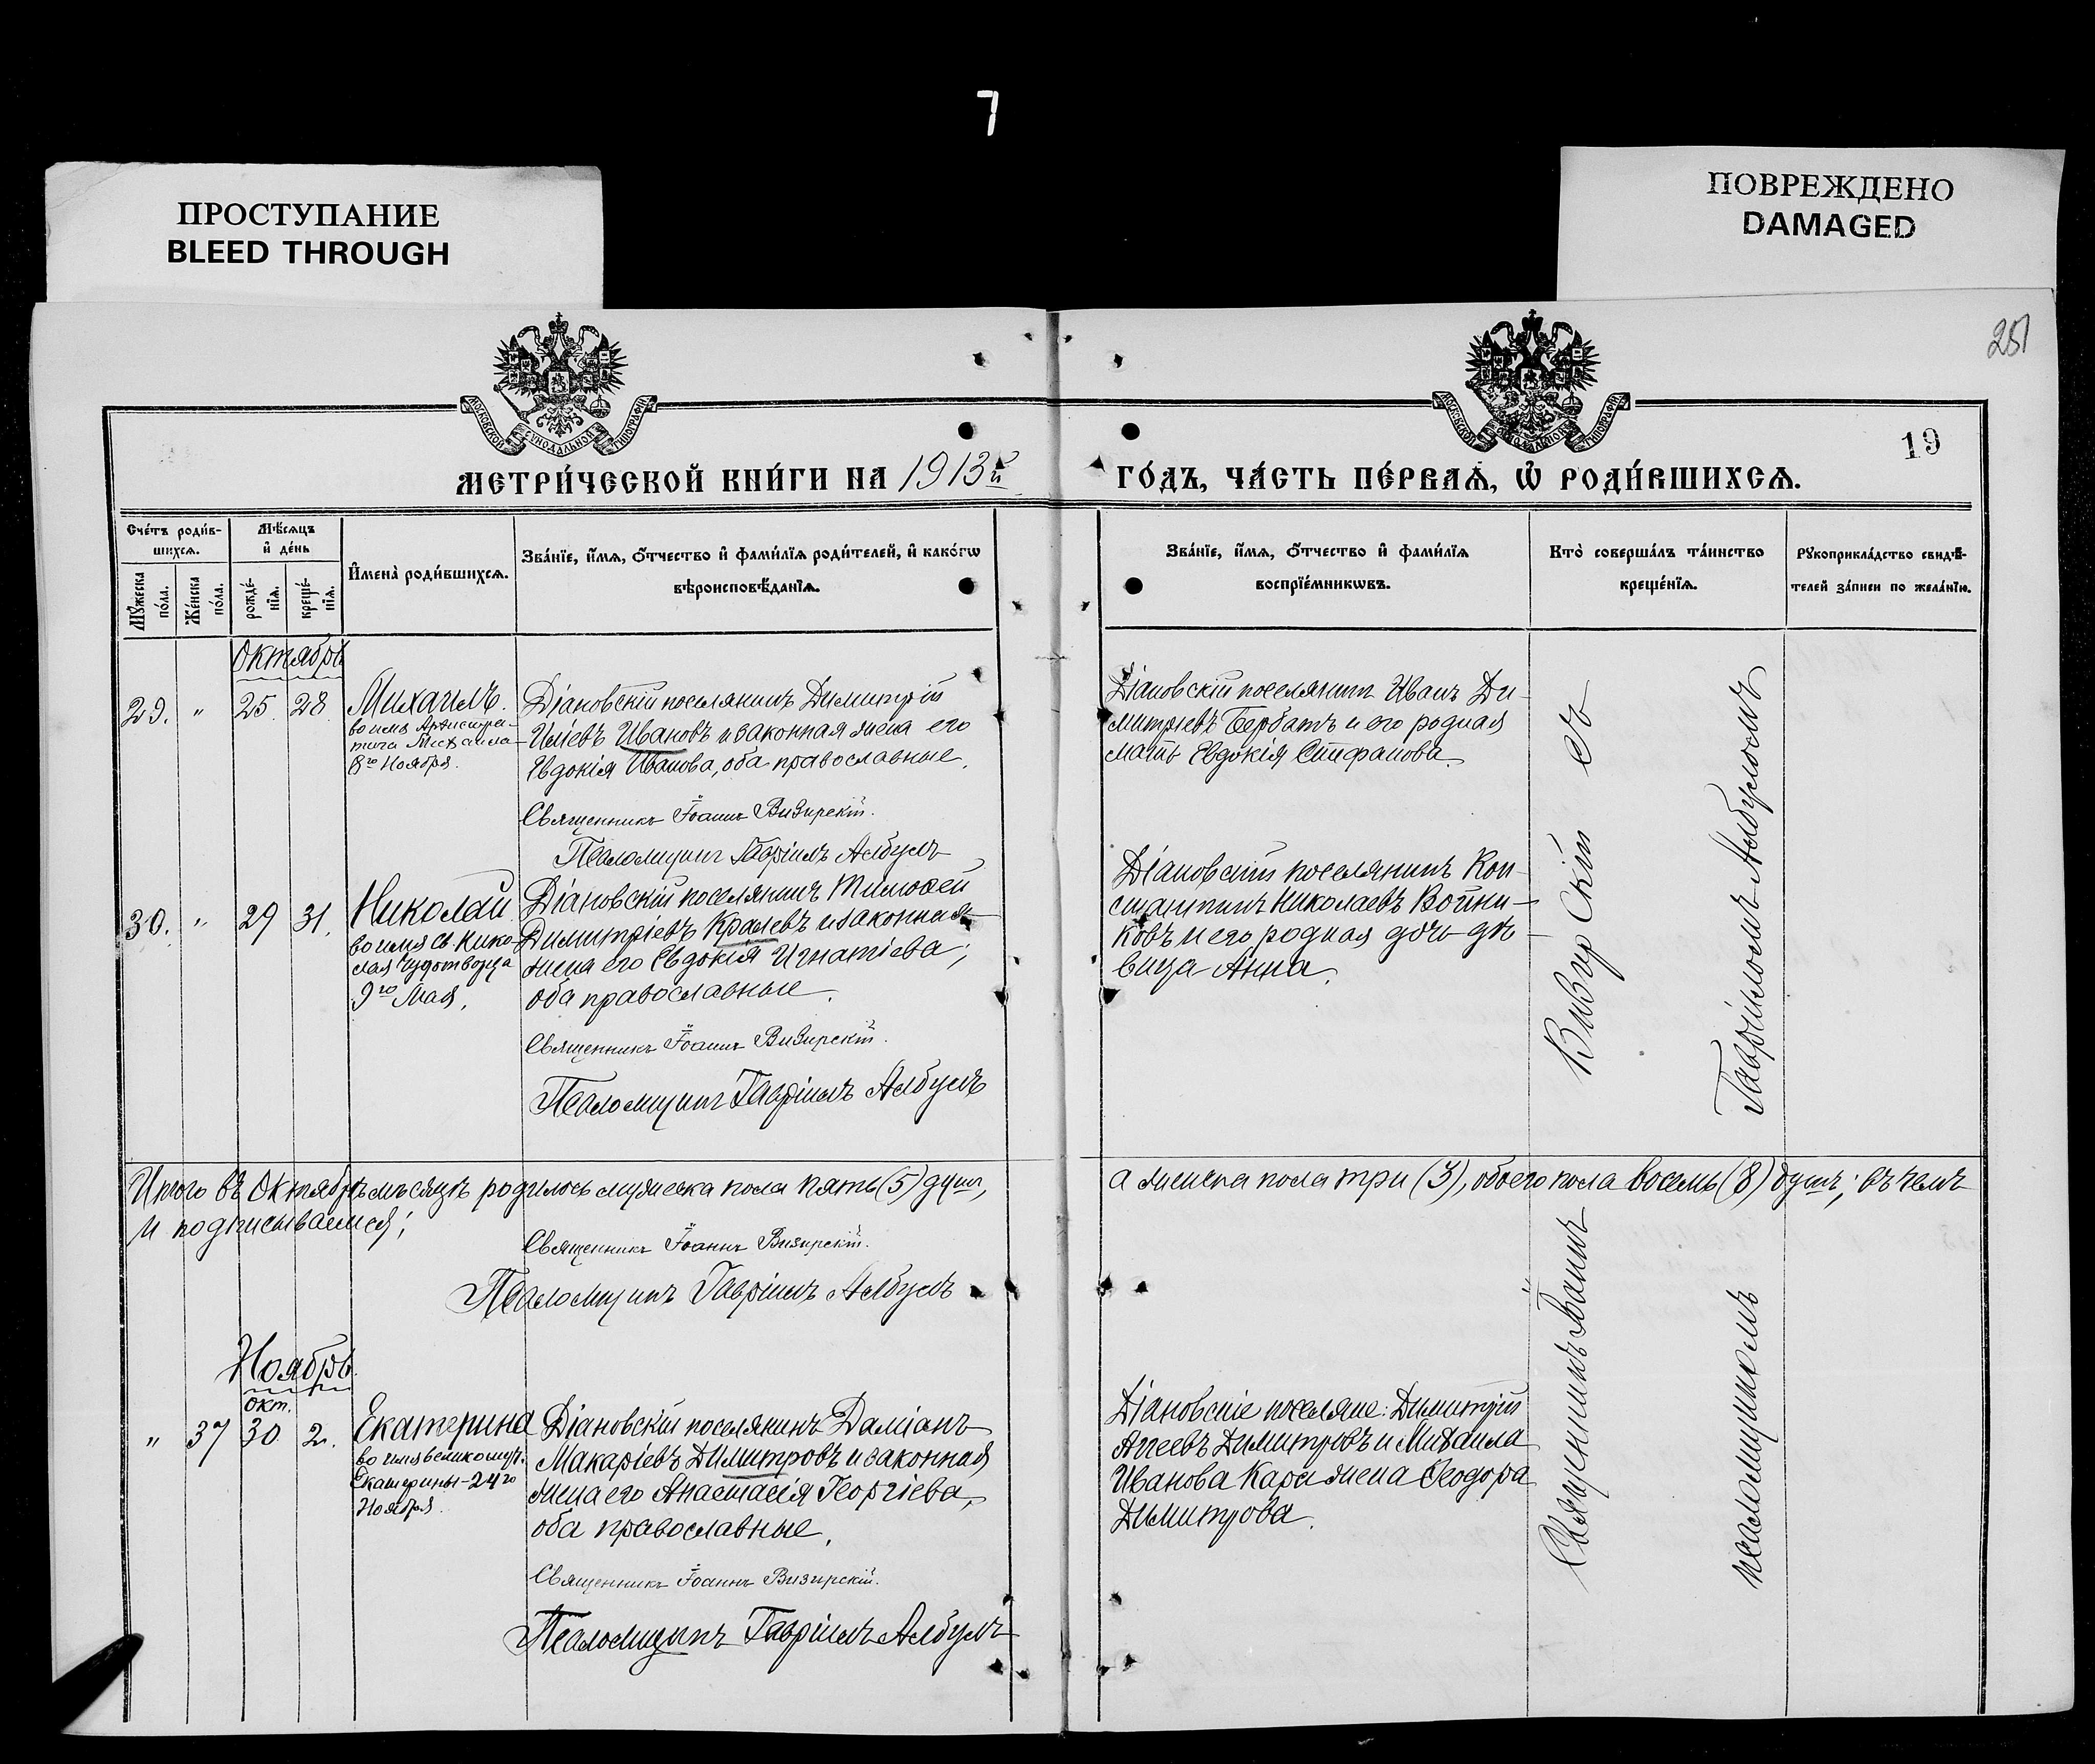 7
ПРОСТУПАНИЕ
BLEED THROUGH
ПОВРЕЖДЕНО
DAMAGED
251
МОСКОВСКОЙ СѴНОДАЛЬНОЙ ТИПОГРАФІИ
МОСКОВСКОЙ СѴНОДАЛЬНОЙ ТИПОГРАФІИ
19
МЕТРИ́ЧЕСКОЙ КНИ́ГИ НА 1913й
ГО́ДЪ, ЧА́СТЬ ПЕ́РВАѦ, Ѡ РОДИ́ВШИХСѦ.
Сче́тъ роди́в-
шихсѧ.
Мꙋ́жеска
по́ла.
Же́нска
по́ла.
Мѣ́сѧцъ
и҆ де́нь
рожде́-
нїѧ.
креще́-
нїѧ.
И҆мена̀ роди́вшихсѧ.
Зва́нїе, и҆́мѧ, ѻ҆́тчество и҆ фами́лїѧ роди́телей, и҆ како́гѡ
вѣроисповѣ́данїѧ.
Зва́нїе, и҆́мѧ, ѻ҆́тчество и҆ фами́лїѧ
воспрїе́мникѡвъ.
Кто̀ соверша́лъ та́инство
креще́нїѧ.
Рꙋкоприкла́дство свидѣ́-
телей за́писи по жела́нїю.
Октябрь
29. " 25. 28.
Михаилъ.
во имя Архистра-
тига Михаила
8го Ноября.
Діановскій поселянинъ Димитрій
Иліевъ Ивановъ и законная жена его
Евдокія Иванова, оба православные.
Священникъ Іоаннъ Визирскій.
Псаломщикъ Гавріилъ Албулъ
Діановскій поселянинъ Иванъ Ди-
митріевъ Бербатъ и его родная
мать Евдокія Стефанова.
30. " 29 31.
Николай
во имя св. Нико-
лая Чудотворца
9го Мая.
Діановскій поселянинъ Тимоѳей
Димитріевъ Кралевъ и законная
жена его Евдокія Игнатіева;
оба православные.
Священникъ Іоаннъ Визирскій.
Псаломщикъ Гавріилъ Албулъ
Діановскій поселянинъ Кон-
стантинъ Николаевъ Войни-
ковъ и его родная дочь дѣ-
вица Анна.
Итого въ Октябрѣ мѣсяцѣ родилось мужеска пола пять (5) душъ,
а женска пола три (3), обоего пола восемь (8) душъ; въ чемъ
и подписываемся:
Священникъ Іоаннъ Визирскій.
Псаломщикъ Гавріилъ Албулъ
Ноябрь.
Окт.
" 37 30. 2.
Екатерина
во имя великомуч.
Екатерины - 24го
Ноября.
Діановскій поселянинъ Даміанъ
Макаріевъ Димитровъ и законная
жена его Анастасія Георгіева,
оба православные.
Священникъ Іоаннъ Визирскій.
Псаломщикъ Гавріилъ Албулъ
Діановскіе поселяне: Димитрій
Аггеевъ Димитровъ и Михаила
Иванова Кара жена Ѳеодора
Димитрова.
Священникъ Іоаннъ Визирскій съ
псаломщикомъ Гавріиломъ Албуломъ